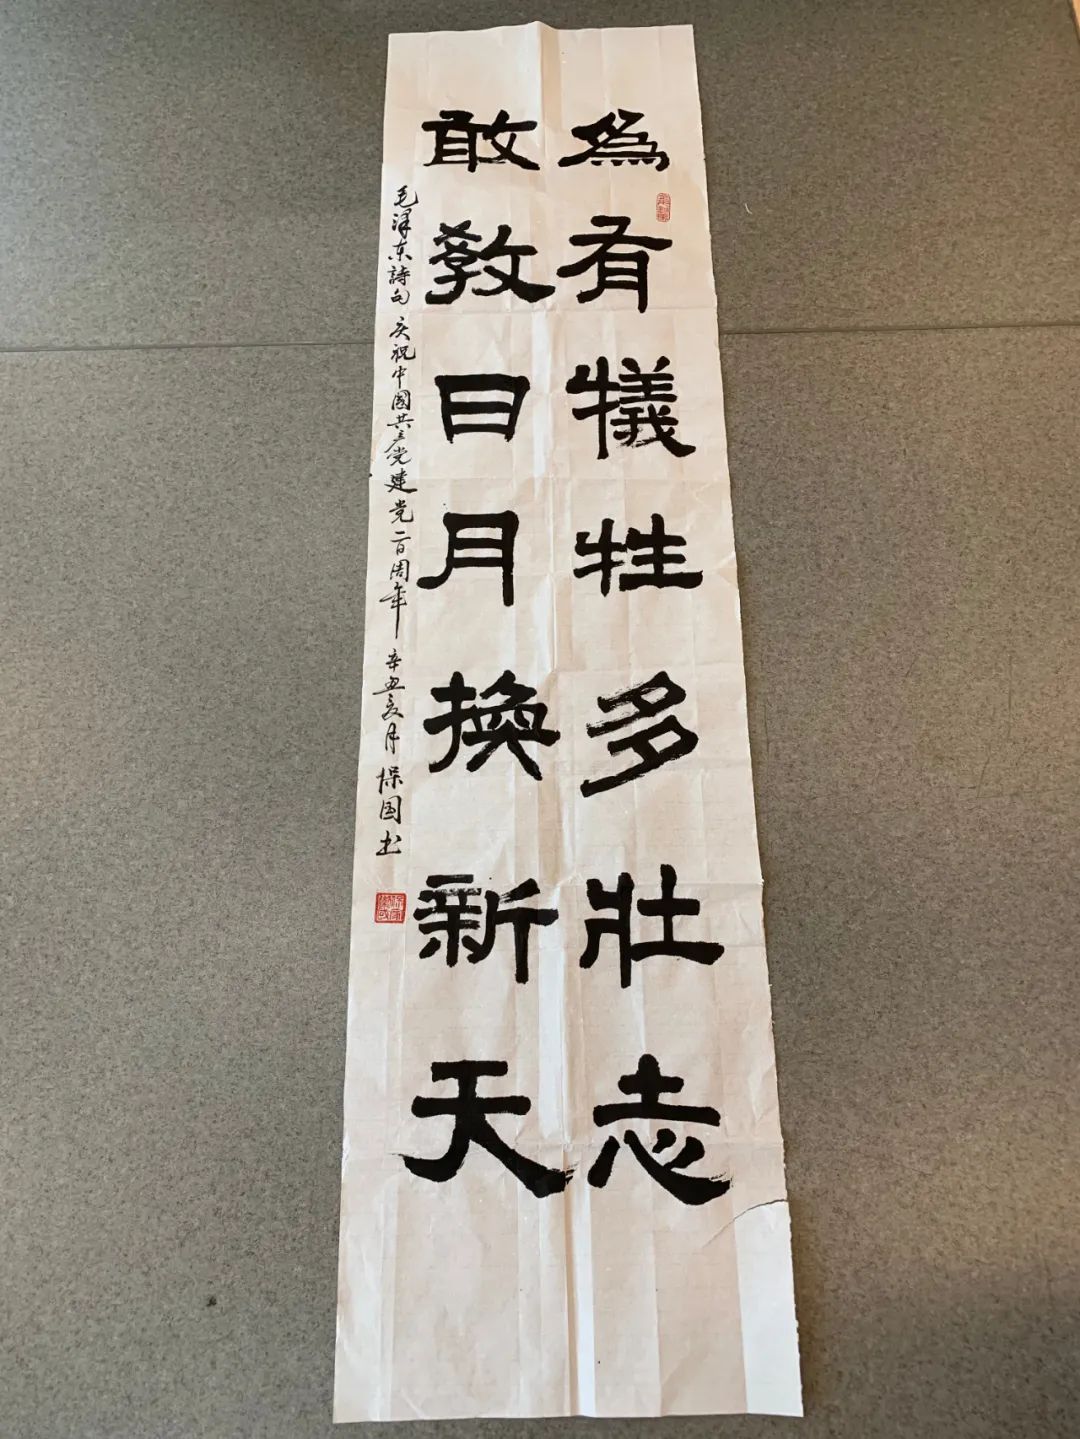 為有犧牲多壯志
敢教日月換新天
毛澤东詩句 庆祝中國共产党建党一百周年 辛丑夏月 保国书